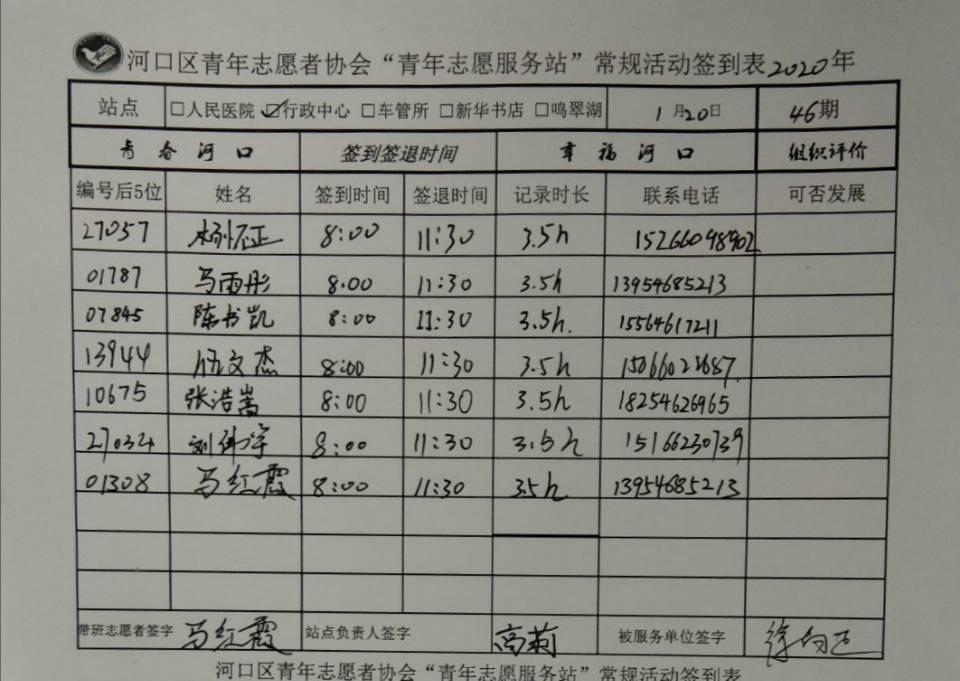 河口区青年志愿者协会“青年志愿服务站”常规活动签到表2020年
站点 □人民医院 ☑行政中心 □车管所 □新华书店 □鸣翠湖 1月20日 46期
青春河口 签到签退时间 幸福河口 组织评价
编号后5位 姓名 签到时间 签退时间 记录时长 联系电话 可否发展
27057 8:00 11:30 3.5h 15266098902
01787 马雨彤 8:00 11:30 3.5h 13954685213
07845 陈书凯 8:00 11:30 3.5h. 15564617211
13944 伍文杰 8:00 11:30 3.5h
10675 张浩嵩 8:00 11:30 3.5h 18254626965
27034 刘伟宇 8:00 11:30 3.5h 15166230739
01308 马红霞 8:00 11:30 3.5h 13954685213
带班志愿者签字 马红霞 站点负责人签字 高莉 被服务单位签字
河口区青年志愿者协会“青年志愿服务站”常规活动签到表